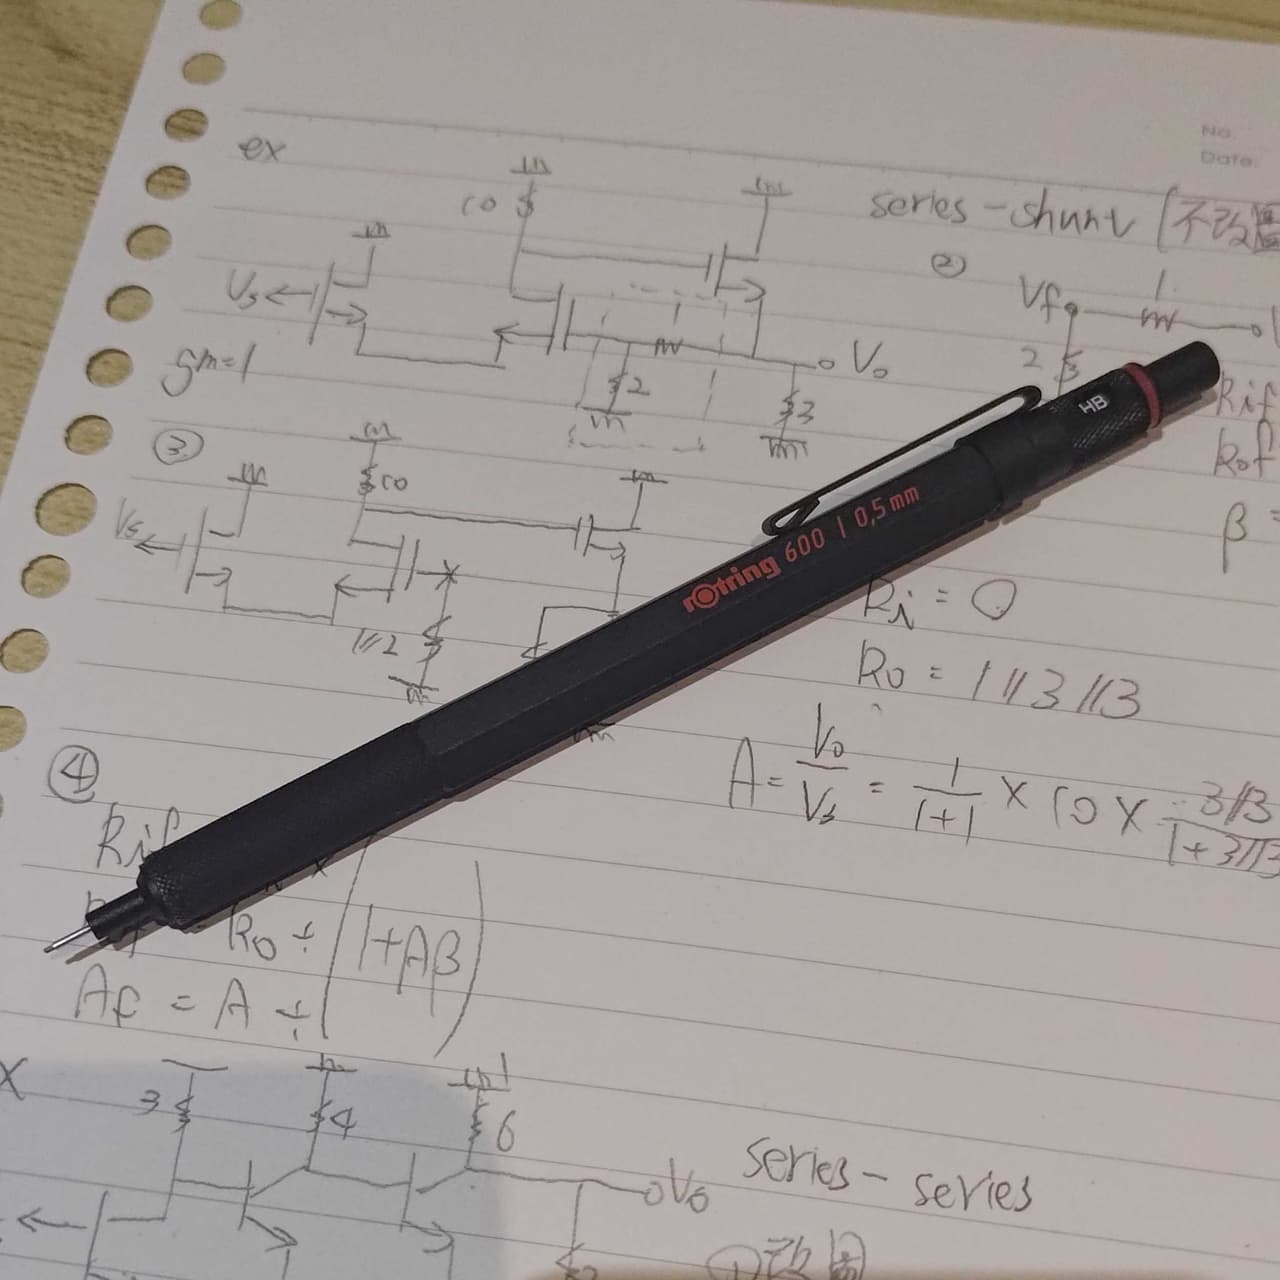 No.
Date
ex
10
series-shunt (不改圖
②
Vs
gm=1
2
3
Vo
Vf
1
2
Rif
Rof
β =
③
Vs
10
1//2
HB
rotring 600 | 0,5 mm
Ri = 0
Ro = 1//3//3
A = Vo/Vs = 1/(1+1) × 10 × 3//3/(1+3//3
④
Rif
Ro ÷ (1+Aβ)
Af = A ÷
3
4
6
Vo
series-series
①改圖